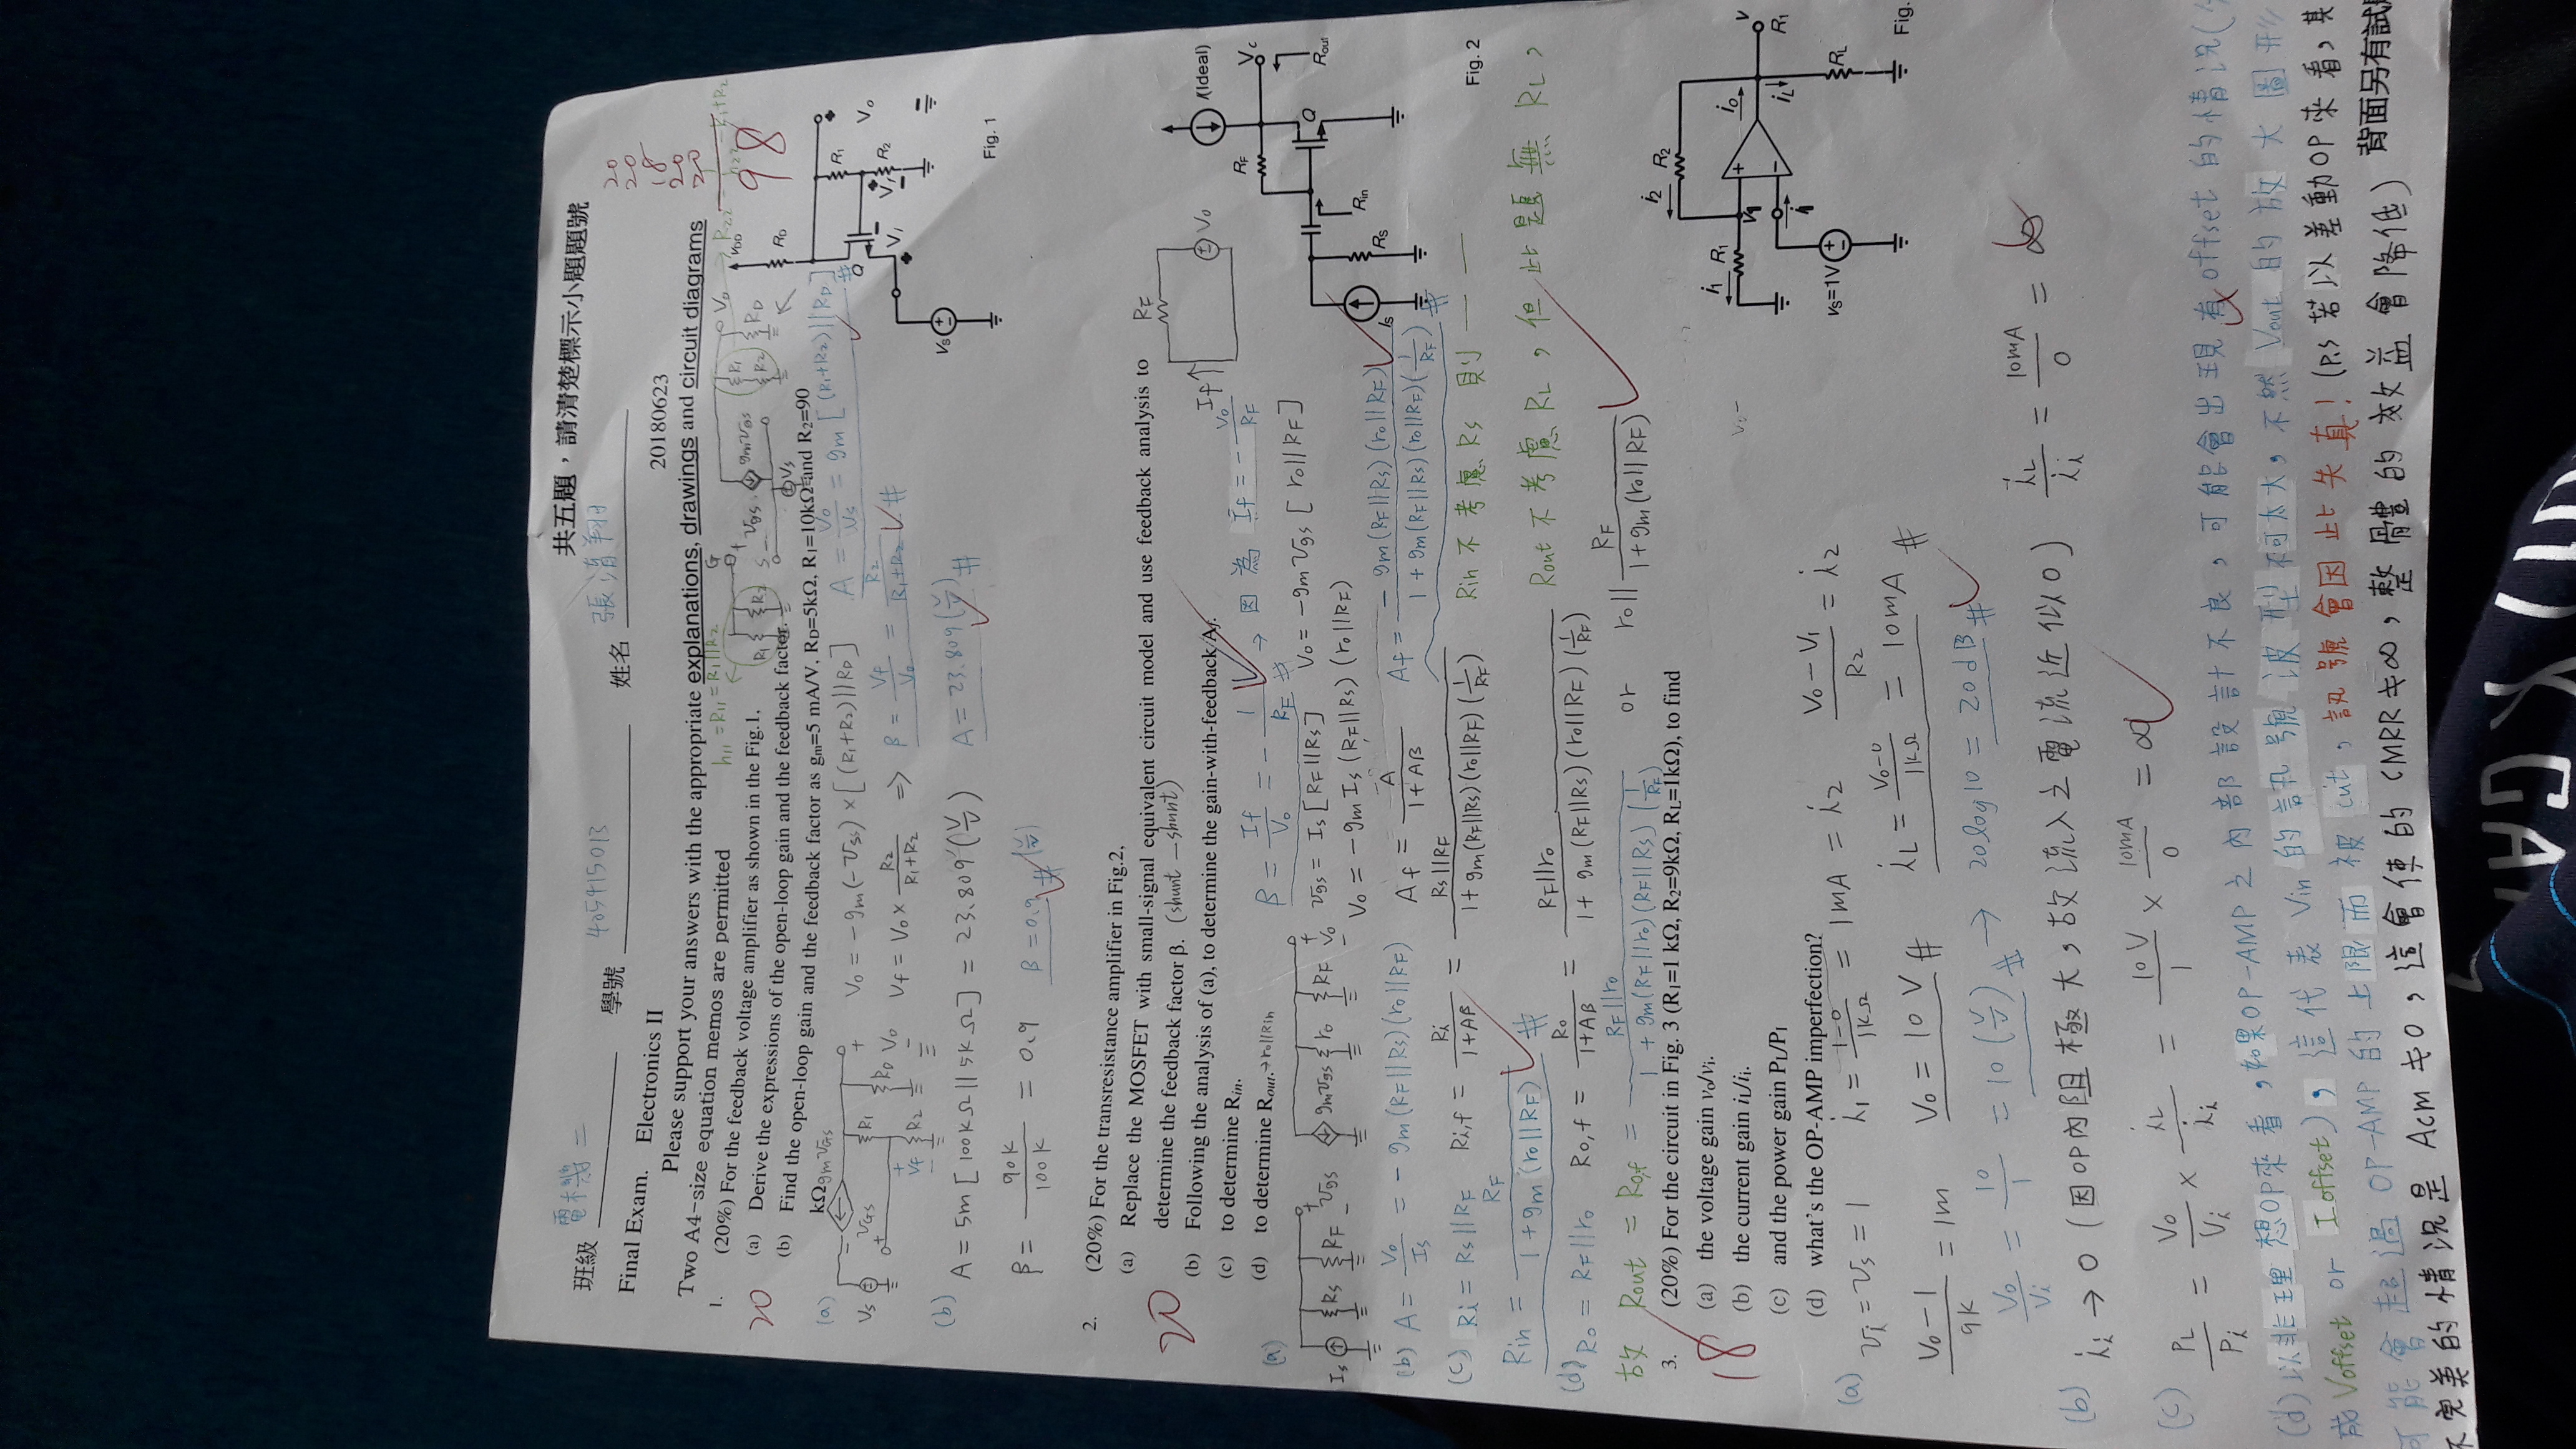 共五題，請清楚標示小題題號
班級 電機二 學號 405415013 姓名 張清翔
20
20
18
20
20
98
Final Exam. Electronics II 20180623
Please support your answers with the appropriate explanations, drawings and circuit diagrams
Two A4-size equation memos are permitted
1. (20%) For the feedback voltage amplifier as shown in the Fig.1,
20
(a) Derive the expressions of the open-loop gain and the feedback factor.
(b) Find the open-loop gain and the feedback factor as gm=5 mA/V, RD=5kΩ, R1=10kΩ and R2=90
kΩ
h11 = R11 = R1||R2
G
R1 R2 + vgs - S gmvgs Vs R1 R2 RD Vo
VDD
RD
R1
Q
Vi
Vf
R2
Vo
Vs
Fig. 1
(a)
gmvGS
Vs vGS R1 RD Vo
Vf R2
A = Vo/Vs = gm[(R1+R2)||RD] #
Vf = Vo × R2/(R1+R2) => β = Vf/Vo = R2/(R1+R2) #
(b) A = 5m [100kΩ||5kΩ] = 23.809 (V/V) A = 23.809 (V/V) #
β = 90k/100k = 0.9 β = 0.9 # (V/V)
2. (20%) For the transresistance amplifier in Fig.2,
20
(a) Replace the MOSFET with small-signal equivalent circuit model and use feedback analysis to
determine the feedback factor β. (shunt-shunt)
(b) Following the analysis of (a), to determine the gain-with-feedback Af.
(c) to determine Rin.
(d) to determine Rout. → ro||Rin
RF
If Vo
I(Ideal)
RF
Q
Rout
Rin
Is
Rs
Fig. 2
(a) β = If/Vo = -1/RF # → 因為 If = -Vo/RF
Is Rs RF vgs gmvgs ro RF Vo
vgs = Is[RF||Rs] Vo = -gmvgs[ro||RF]
Vo = -gm Is (RF||Rs)(ro||RF)
(b) A = Vo/Is = -gm(RF||Rs)(ro||RF) Af = A/(1+Aβ) Af = -gm(RF||Rs)(ro||RF)/(1+gm(RF||Rs)(ro||RF)(1/RF)) #
(c) Ri = Rs||RF Ri,f = Ri/(1+Aβ) = Rs||RF/(1+gm(RF||Rs)(ro||RF)(1/RF)) Rin 不考慮 Rs 則——
Rin = RF/(1+gm(ro||RF)) #
(d) Ro = RF||ro Ro,f = Ro/(1+Aβ) = RF||ro/(1+gm(RF||Rs)(ro||RF)(1/RF)) Rout 不考慮 RL，但此題無 RL，
故 Rout = Ro,f = RF||ro/(1+gm(RF||ro)(RF||Rs)(1/RF)) or ro||RF/(1+gm(ro||RF))
3. (20%) For the circuit in Fig. 3 (R1=1 kΩ, R2=9kΩ, RL=1kΩ), to find
18
(a) the voltage gain vo/vi.
(b) the current gain iL/ii.
(c) and the power gain PL/PI
(d) what's the OP-AMP imperfection?
i2 R2
i1 R1
io
iL
vs=1V
RL
Fig.
(a) vi = vs = 1 i1 = (1-0)/1kΩ = 1mA = i2 (Vo-V1)/R2 = i2
(Vo-1)/9k = 1m Vo = 10 V # iL = (Vo-0)/1kΩ = 10mA #
Vo/Vi = 10/1 = 10 (V/V) # → 20log10 = 20dB #
(b) ii → 0 (因OP內阻極大，故流入之電流近似0) iL/ii = 10mA/0 = ∞
(c) PL/Pi = Vo/Vi × iL/ii = 10V/1 × 10mA/0 = ∞
(d) 以非理想OP來看，如果OP-AMP之內部設計不良，可能會出現有offset的情況(
成Voffset or Ioffset)，這代表Vin的訊號波型不可太大，不然Vout的放大圖形
可能會超過OP-AMP的上限而被cut，訊號會因此失真！(P.S 若以差動OP來看，其
不完美的情況是Acm≠0，這會使的CMRR≠∞，整體的效益會降低)
背面另有試